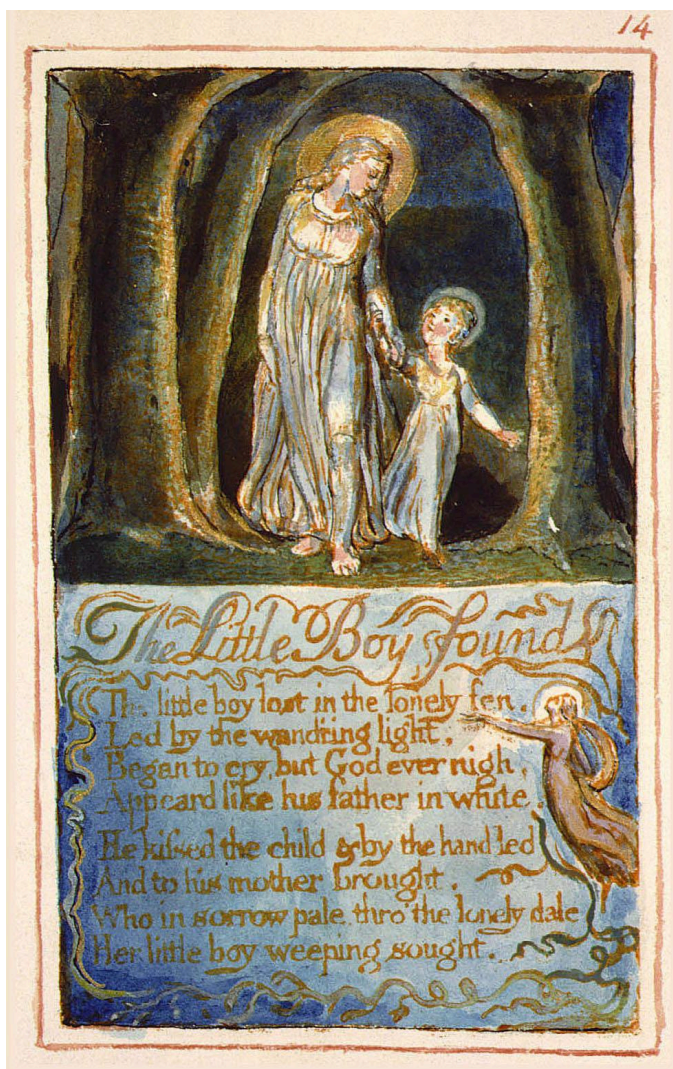 14
The Little Boy found
The little boy lost in the lonely fen,
Led by the wandring light,
Began to cry, but God ever nigh,
Appeard like his father in white.
He kifsed the child & by the hand led
And to his mother brought,
Who in sorrow pale, thro' the lonely dale
Her little boy weeping sought.